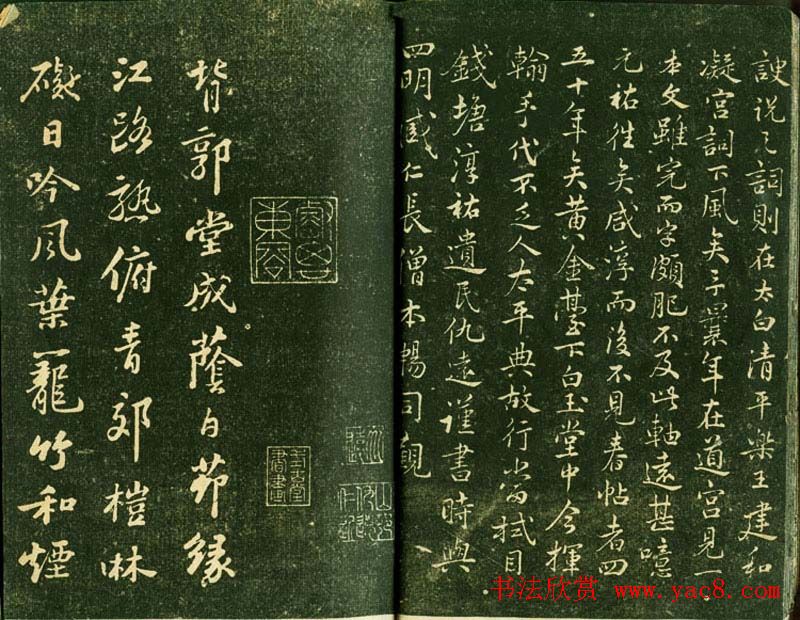 諛説之詞則在太白清平樂王建和
凝宮詞下風矣予曩年在道宮見一
本文雖完而字頗肥不及此軸遠甚噫
元祐往矣咸淳而後不見春帖者四
五十年矣黃金臺下白玉堂中今揮
翰手代不乏人太平典故行當拭目
錢塘淳祐遺民仇遠謹書時與
四明臧仁長僧本暢同觀
背郭堂成蔭白茅緣
江路熟俯青郊榿林
礙日吟風葉籠竹和煙
书法欣赏 www.yac8.com